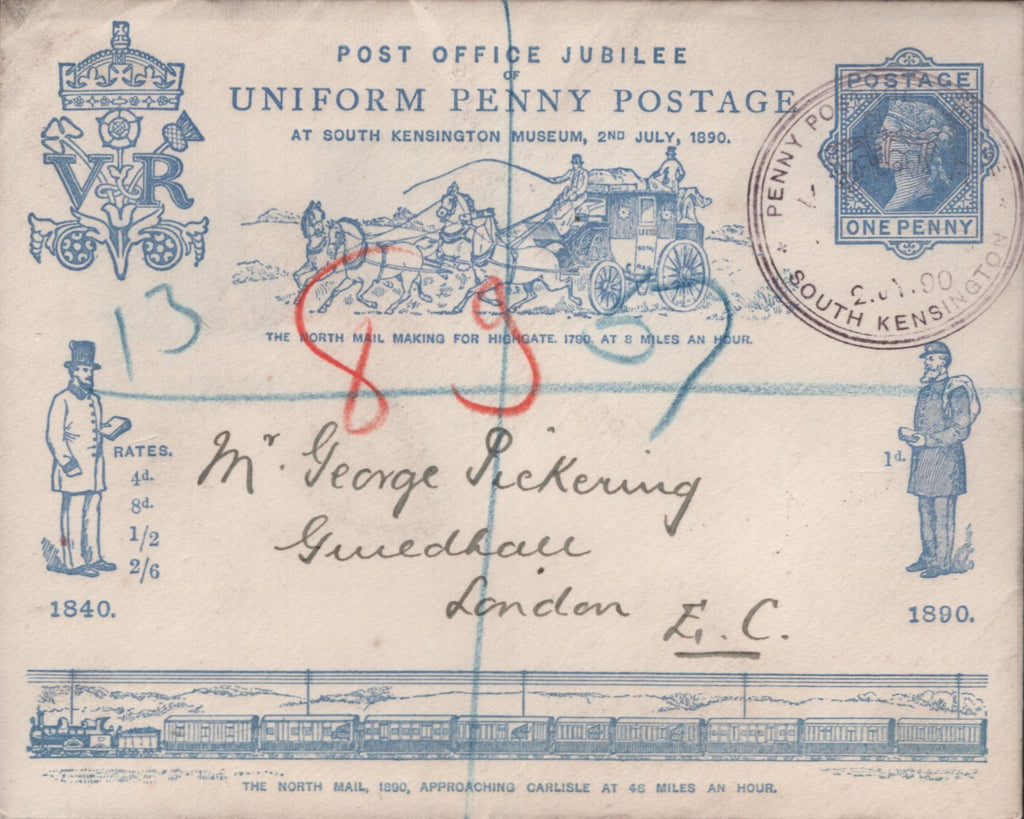 POST OFFICE JUBILEE
OF
UNIFORM PENNY POSTAGE
AT SOUTH KENSINGTON MUSEUM, 2ND JULY, 1890.
VR
POSTAGE
ONE PENNY
PENNY PO
2.JY.90
SOUTH KENSINGTON
LEEDS
ROYAL
THE NORTH MAIL MAKING FOR HIGHGATE. 1790. AT 8 MILES AN HOUR.
13
89
RATES.
4d.
8d.
1/2
2/6
1840.
1d.
1890.
Mr. George Pickering
Guildhall
London
E. C.
THE NORTH MAIL, 1890, APPROACHING CARLISLE AT 48 MILES AN HOUR.